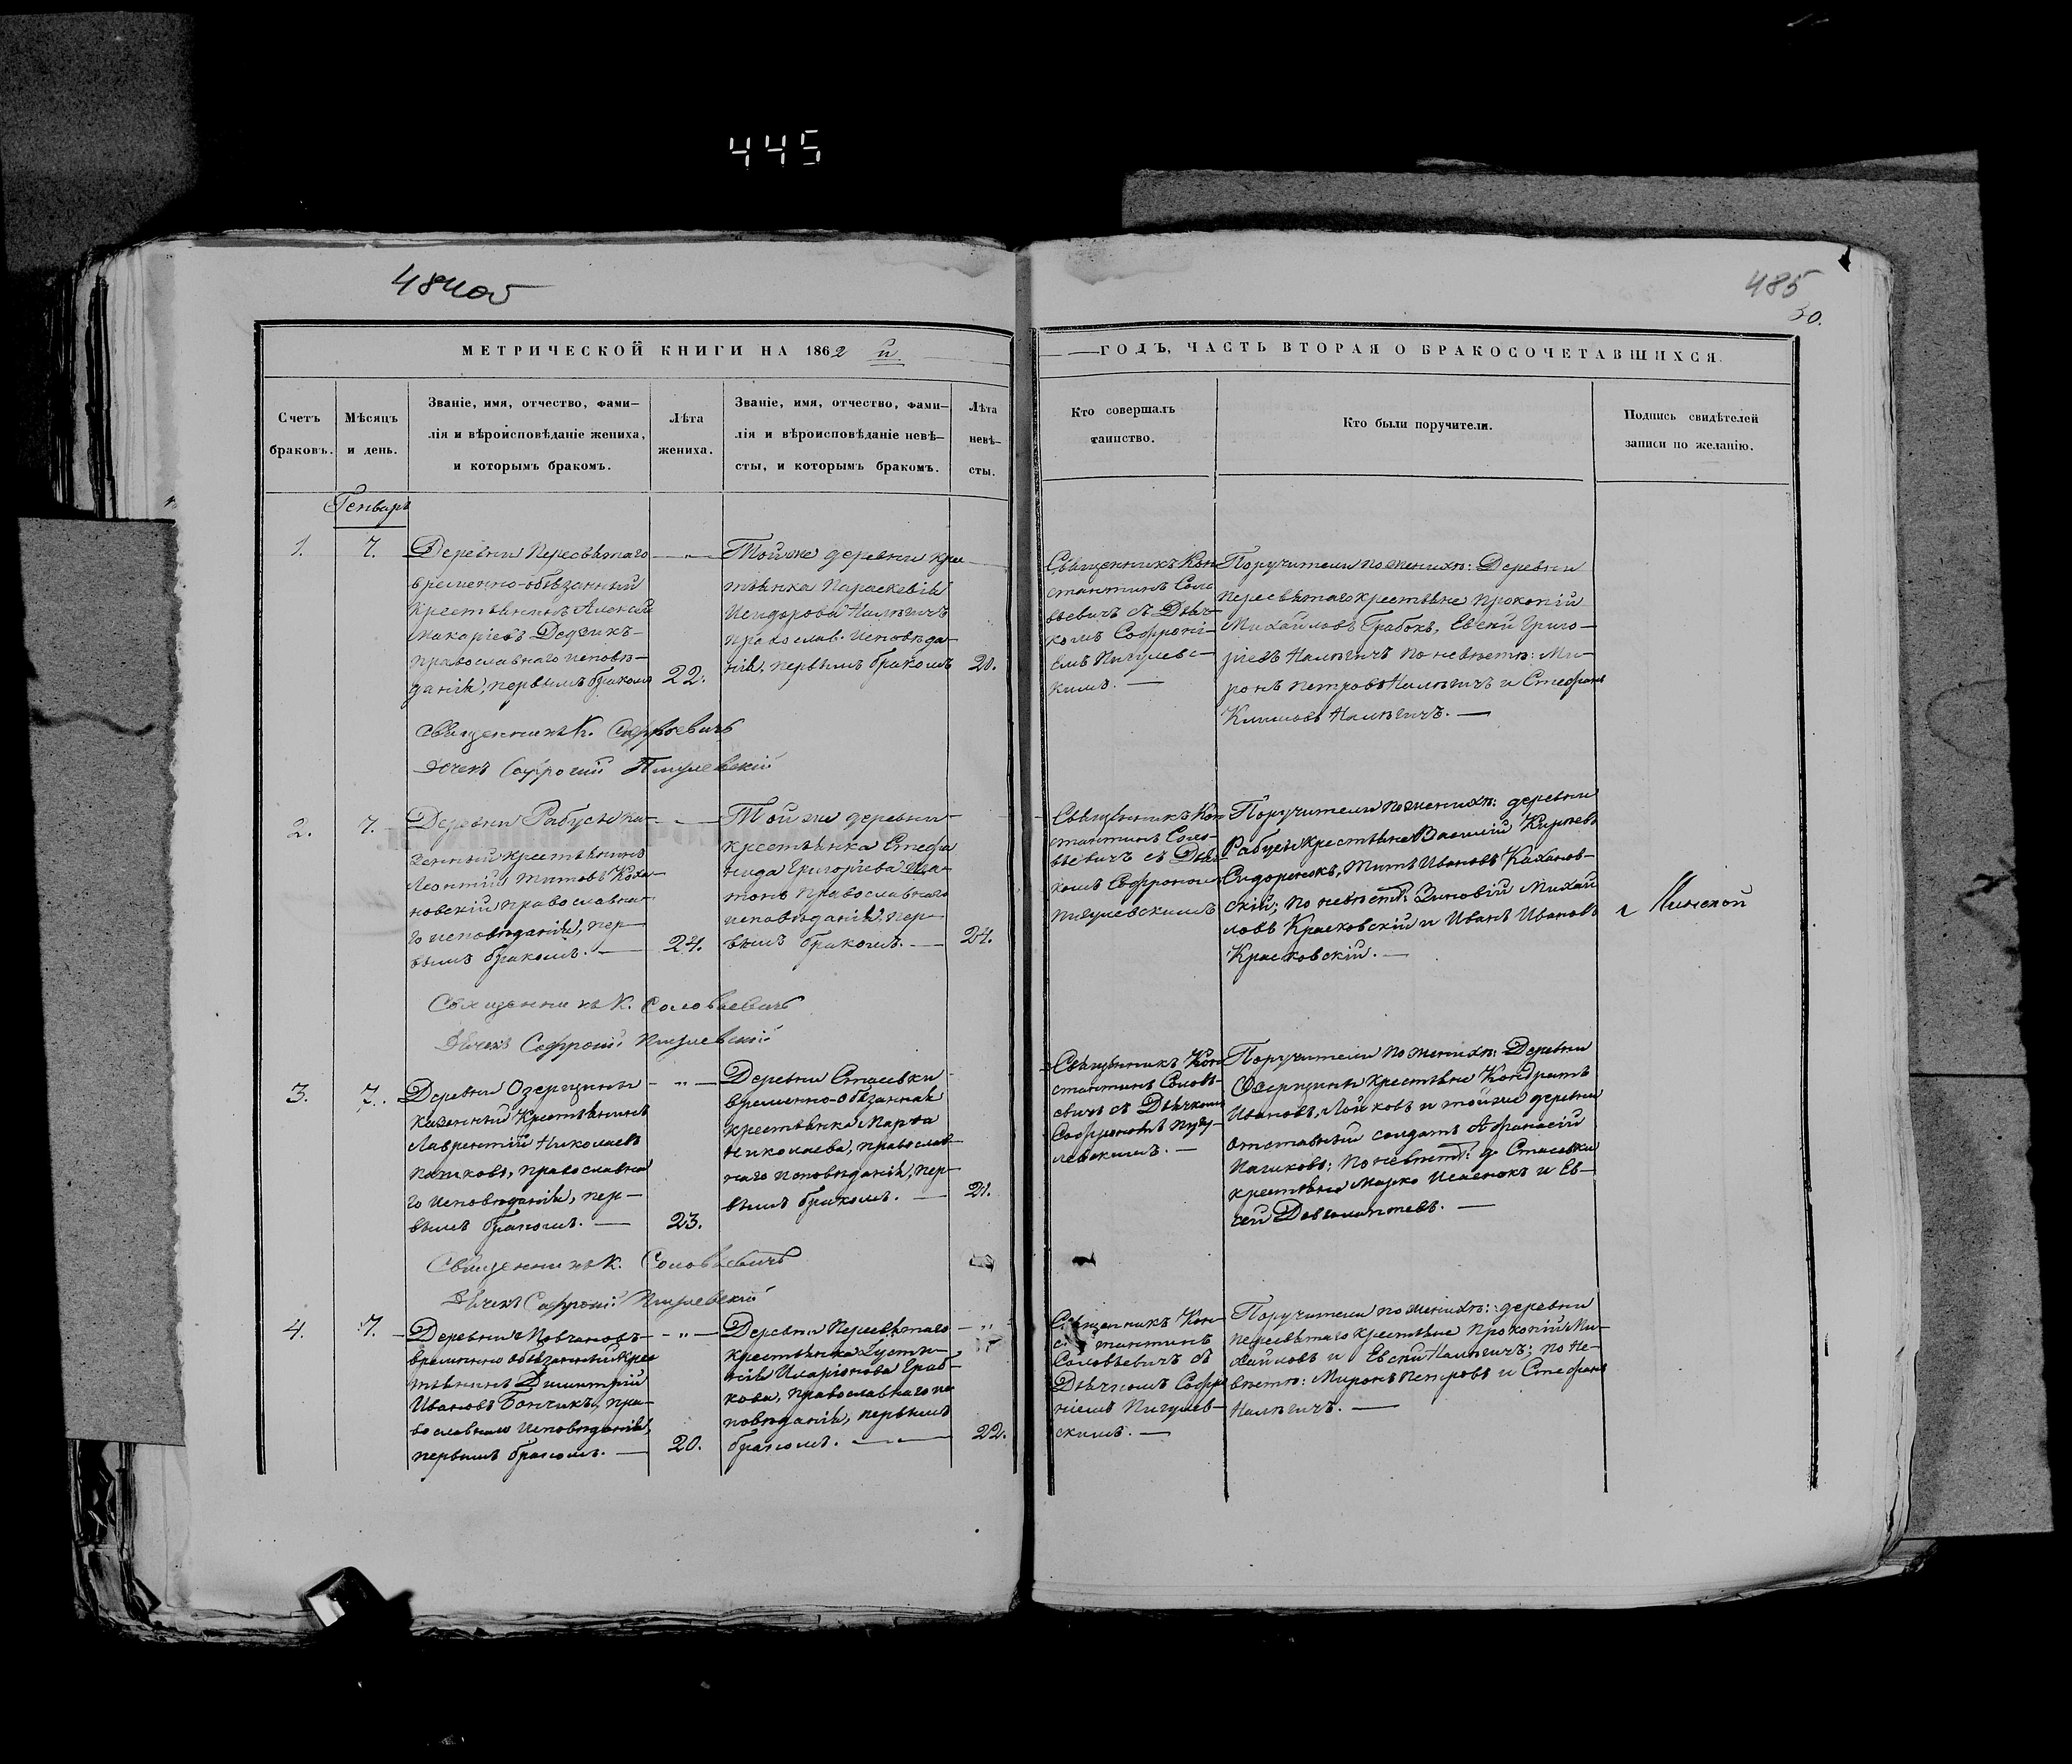 445
484об
485
50.
МЕТРИЧЕСКОЙ КНИГИ НА 1862 й
ГОДЪ, ЧАСТЬ ВТОРАЯ О БРАКОСОЧЕТАВШИХСЯ.
Счетъ
браковъ.
Мѣсяцъ
и день.
Званіе, имя, отчество, фами-
лія и вѣроисповѣданіе жениха,
и которымъ бракомъ.
Лѣта
жениха.
Званіе, имя, отчество, фами-
лія и вѣроисповѣданіе невѣ-
сты, и которымъ бракомъ.
Лѣта
невѣ-
сты.
Кто совершалъ
таинство.
Кто были поручители.
Подпись свидѣтелей
записи по желанію.
Генварь
1.
7.
Деревни Пересвѣтаго
временно-обязанный
крестьянинъ Алексій
Макаріевъ Дедзикъ
православнаго исповѣ-
данія, первымъ бракомъ
22.
Той же деревни крес
тьянка Параскевія
Исидорова Налѣгичъ
православ. исповѣда-
нія, первымъ бракомъ
20.
Священникъ Кон
стантинъ Соло
вьевичъ съ Дьяч-
комъ Софроні-
емъ Пигулевс-
кимъ. —
Поручители по женихѣ: Деревни
Пересвѣтаго крестьяне Прокопій
Михайловъ Грабокъ, Евсий Григо-
ріевъ Налѣгичъ по невѣстѣ: Ми-
ронъ Петровъ Налѣгичъ и Стефанъ
Климовъ Налѣгичъ. —
Священникъ К. Соловьевичъ
Дячекъ Софроній Пигулевскій
2.
7.
Деревни Рабуси ка-
зенный крестьянинъ
Леонтій Титовъ Коха-
новскій православна-
го исповѣданія, пер-
вымъ бракомъ. —
24.
Той же деревни
крестьянка Стефа
нида Григоріева
православнаго
исповѣданія, пер-
вымъ бракомъ. —
24.
Священникъ Кон
стантинъ Соло-
вьевичъ съ Дьяч
комъ Софроніем
Пигулевскимъ
Поручители по женихѣ: деревни
Рабуси крестьяне Василій Кирѣевъ
Сидоренокъ, Титъ Ивановъ Каханов-
скій; по невѣстѣ: Зиновій Михай
ловъ Красковскій и Иванъ Ивановъ
Красковскій. —
Минской
Священникъ К. Соловьевичъ
Дячекъ Софроній Пигулевскій
3.
7.
Деревни Озерщины
казенный крестьянинъ
Лаврентій Николаевъ
православна
го исповѣданія, пер-
вымъ бракомъ. —
23.
Деревни Стасевки
временно-обязанная
крестьянка Марѳа
Николаева, православ-
наго исповѣданія, пер-
вымъ бракомъ. —
21.
Священникъ Кон
стантинъ Соловь-
евичъ съ Дьячкомъ
Софроніемъ Пигу-
левскимъ. —
Поручители по женихѣ: Деревни
Озерщины крестьяне Кондратъ
Ивановъ, и той же деревни
отставный солдатъ Афанасій
по невѣстѣ: д. Стасевки
крестьяне Марко и Ев-
сей —
Священникъ К. Соловьевичъ
Дячекъ Софроній Пигулевскій
4.
7.
Деревни
временно обязанный крес
тьянинъ Димитрій
Ивановъ Бончикъ, пра-
вославнаго исповѣданія,
первымъ бракомъ. —
20.
Деревни Пересвѣтаго
крестьянка Густи-
нія Иларіонова Граб-
кова, православнаго ис
повѣданія, первымъ
бракомъ. —
22.
Священникъ Кон-
стантинъ
Соловьевичъ съ
Дьячкомъ Софро
ніемъ Пигулев-
скимъ. —
Поручители по женихѣ: деревни
Пересвѣтаго крестьяне Прокопій Ми-
хайловъ и Евсий Налѣгичъ; по не-
вѣстѣ: Миронъ Петровъ и Стефанъ
Налѣгичъ. —